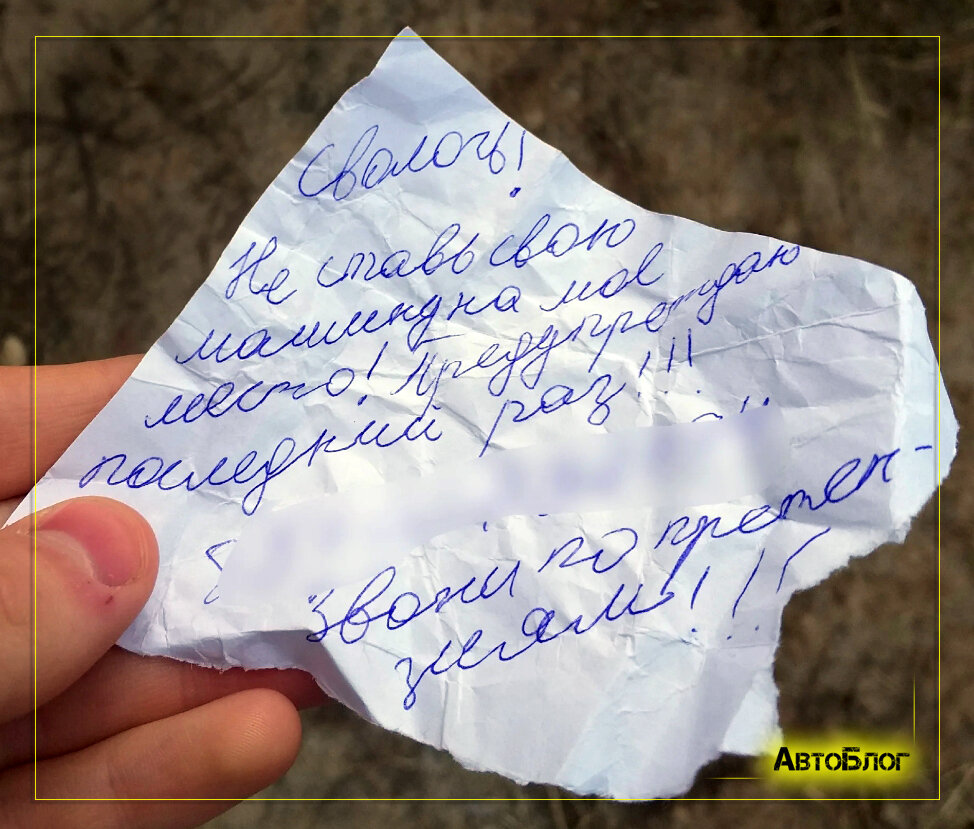 Сволочь!
Не ставь свою
машину на мое
место! Предупреждаю
последний раз!!!
Звони по претен-
зиям!!!
АвтоБлог